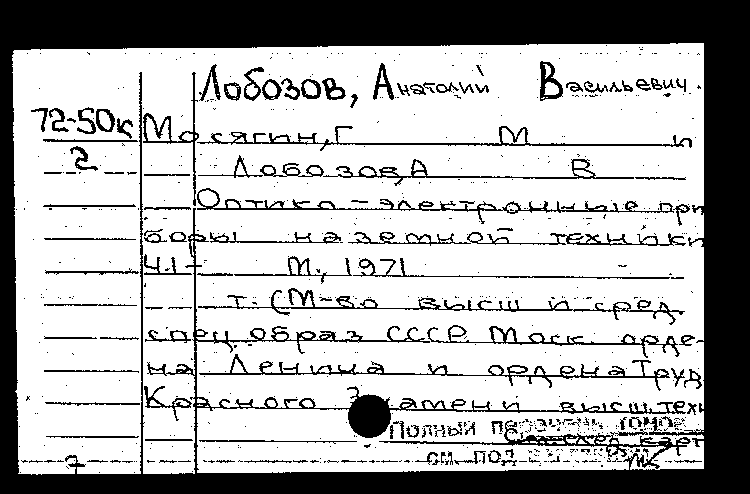 Лобозов, Анатолий Васильевич.
72-50к Мосягин, Г М и
2 Лобозов, А В
Оптико-электронные при
боры наземной техники
Ч.1- М., 1971
т. (М-во высш и сред.
спец. образ СССР. Моск. орде-
на Ленина и ордена Труд
Красного Знамени высш. техн
Полный перечень томов
см. под